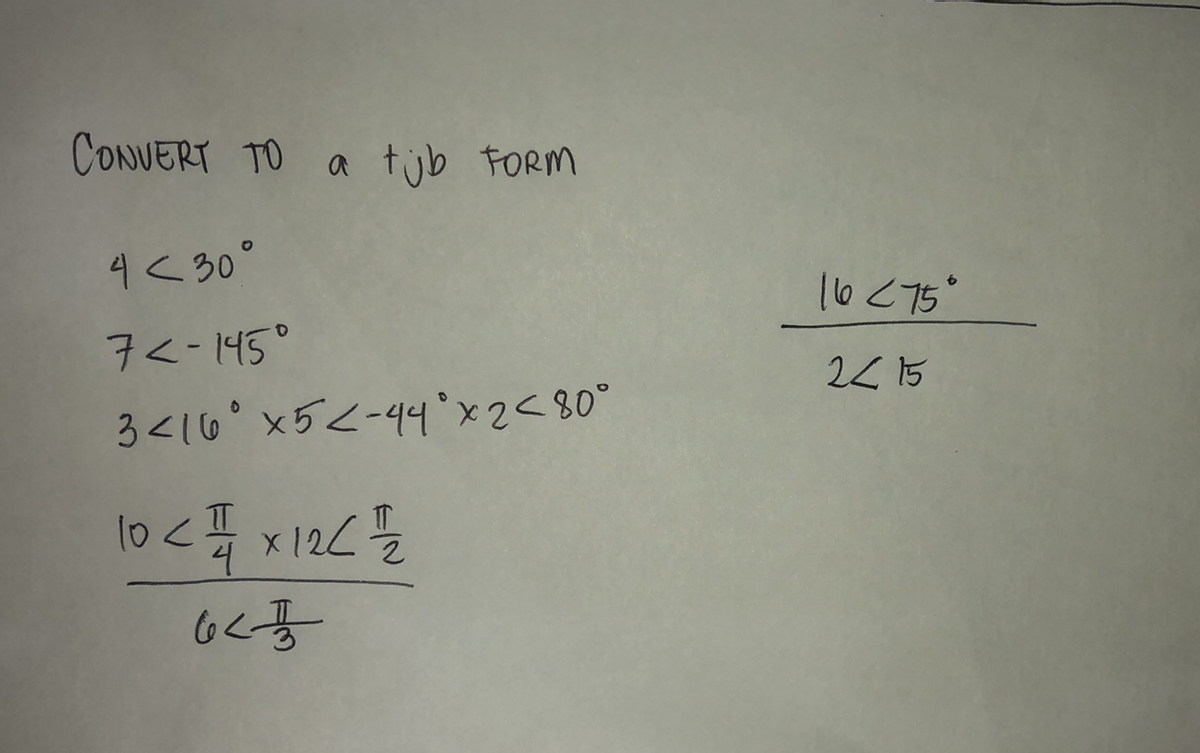 CONVERT TO a + jb FORM
4 < 30°
7 < -145°
3 < 16° x 5 < -44° x 2 < 80°
10 < π/4 x 12 < π/2
6 < π/3
16 < 75°
2 < 15